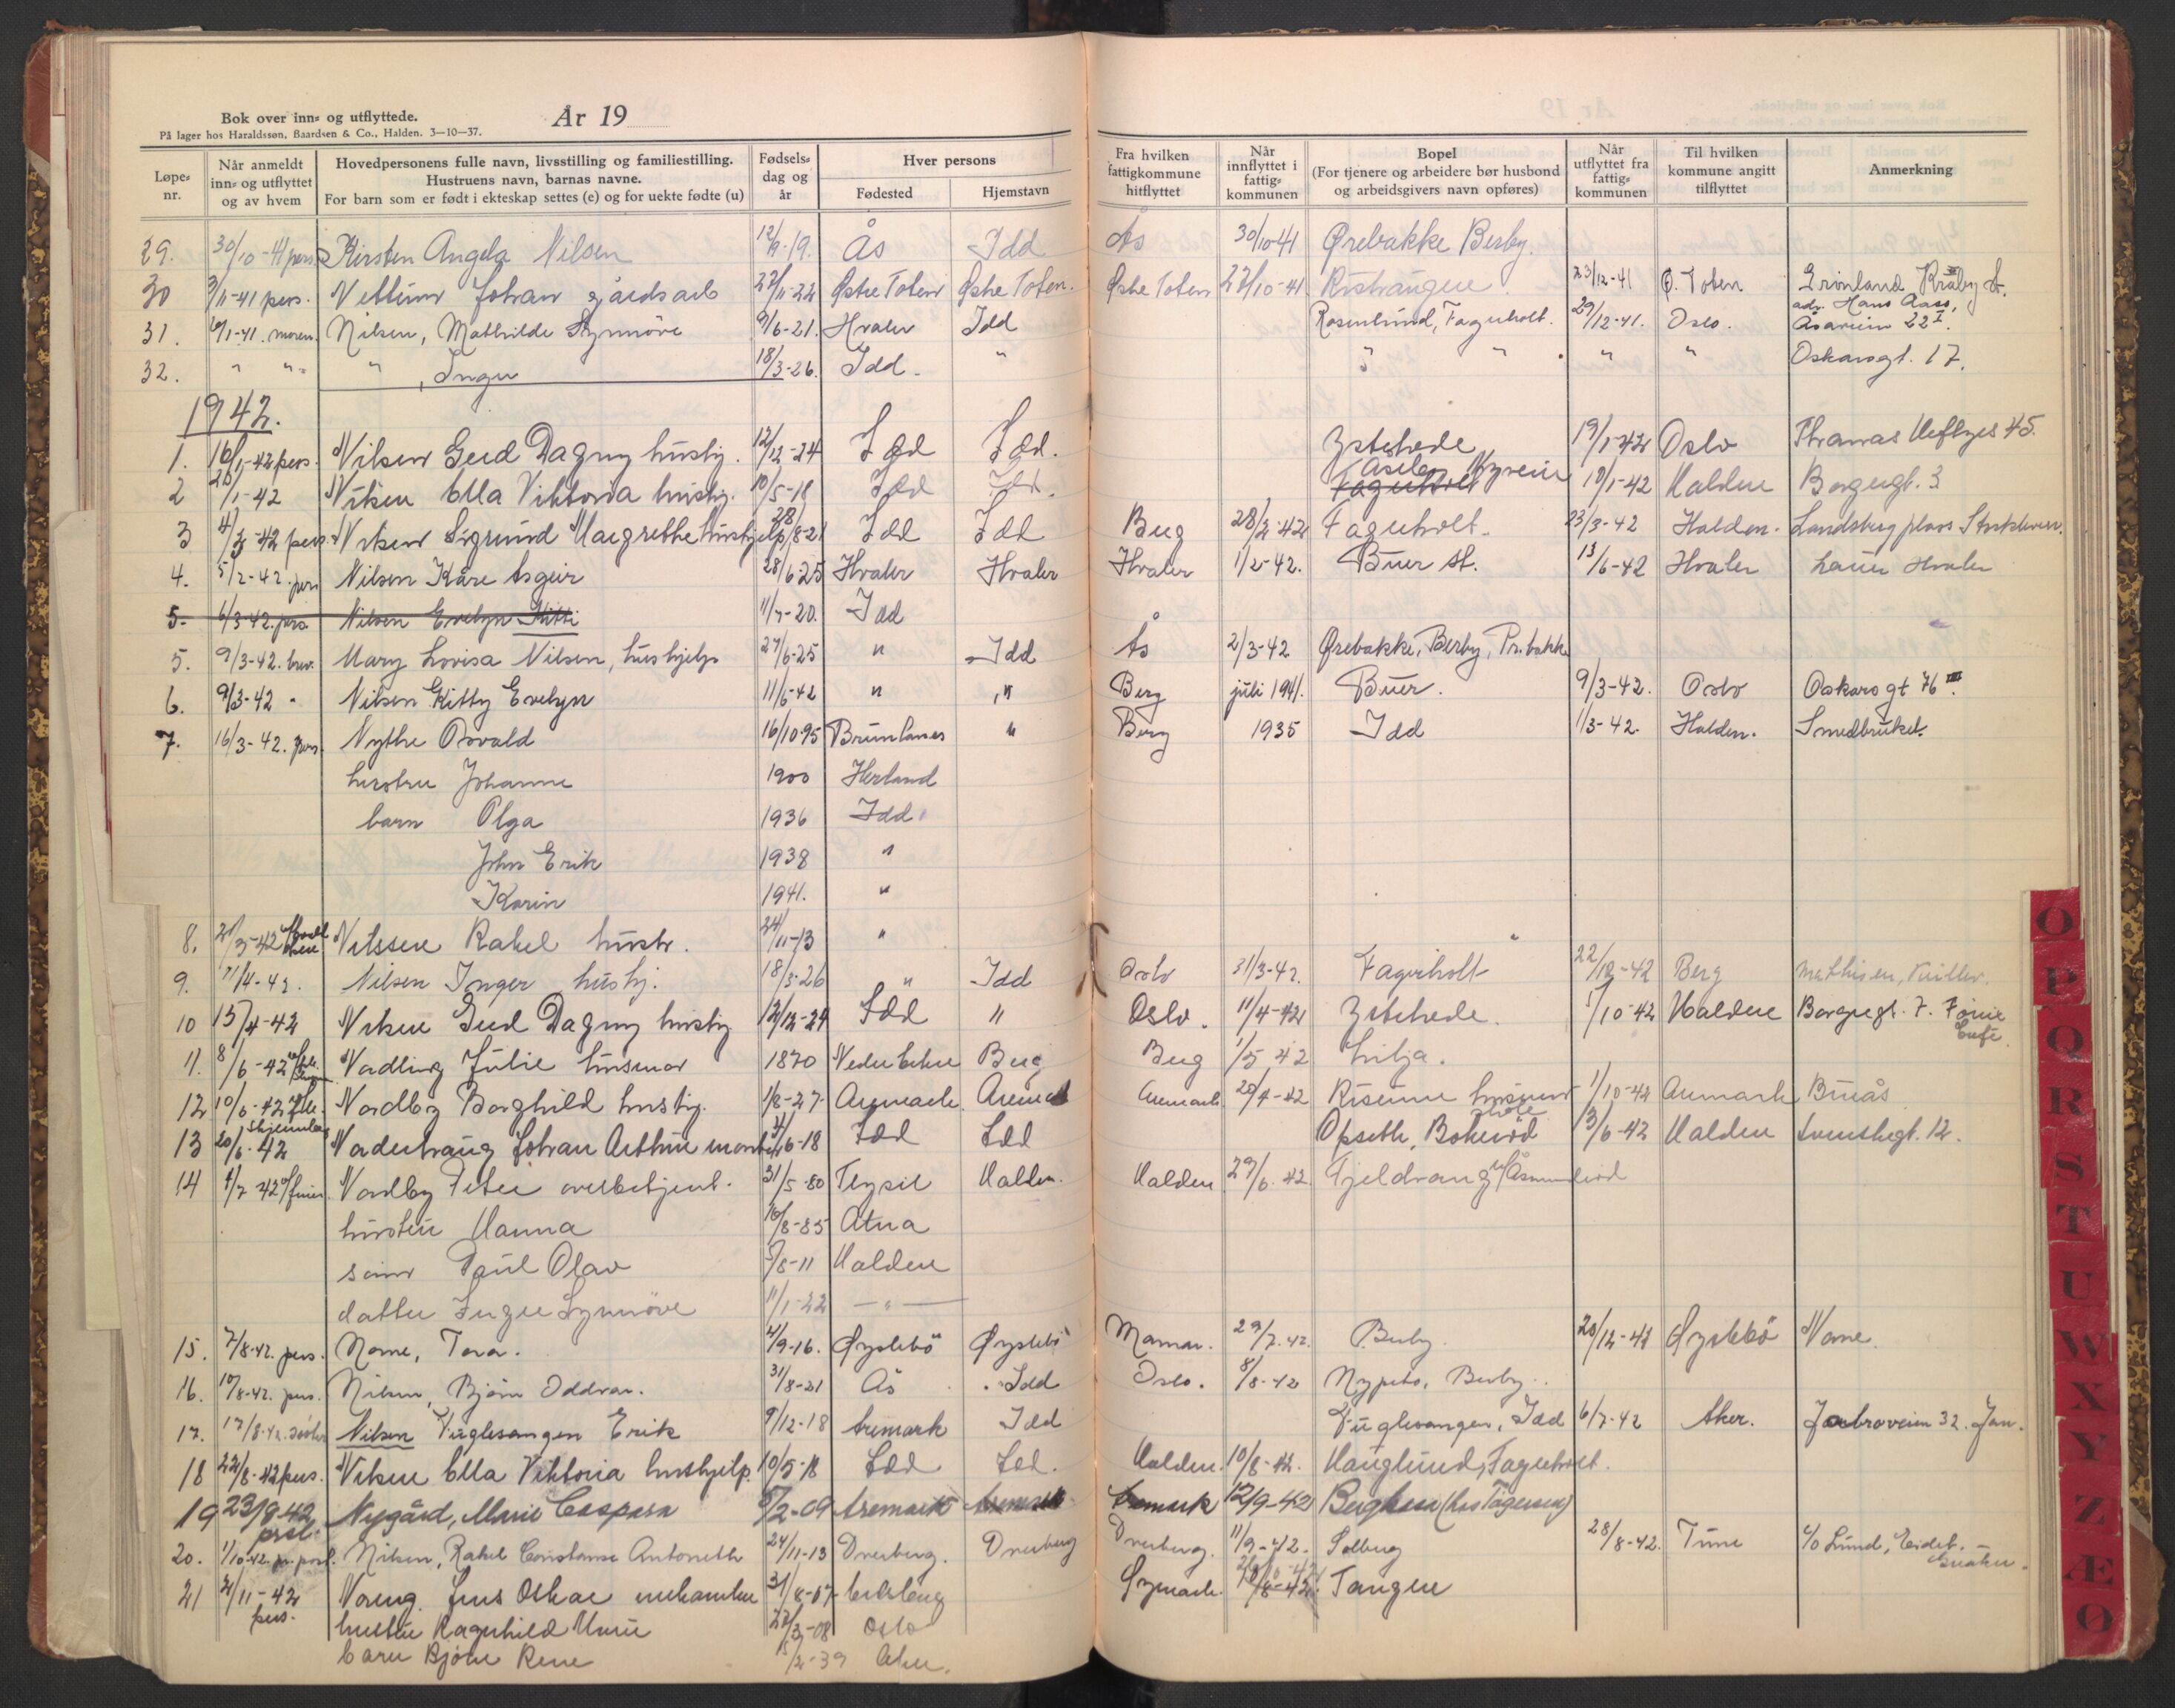 Bok over inn- og utflyttede.
På lager hos Haraldssøn, Baardsen & Co., Halden. 3—10—37.
År 19
Løpe-nr.
Når anmeldt inn- og utflyttet og av hvem
Hovedpersonens fulle navn, livsstilling og familiestilling.
Hustruens navn, barnas navne.
For barn som er født i ekteskap settes (e) og for uekte fødte (u)
Fødsels-dag og år
Hver persons
Fødested
Hjemstavn
Fra hvilken fattigkommune hitflyttet
Når innflyttet i fattig-kommunen
Bopel
(For tjenere og arbeidere bør husbond og arbeidsgivers navn opføres)
Når utflyttet fra fattig-kommunen
Til hvilken kommune angitt tilflyttet
Anmerkning
29. 30/10-41 pers. Kirsten Angela Nilsen 12/9-19. Ås Idd Ås 30/10-41 Ørebakke Berby.
30 3/11-41 pers. Johan 22/11-22 Østre Toten Østre Toten. Østre Toten 22/10-41 23/12-41 Ø. Toten Grønland Kråby st.
31. moren. Nilsen, Mathilde Synnöve 9/6-21. Hvaler Idd Rosenlund, Fagerholt. 29/12-41. Oslo. adr. Hans Aass, 22 I.
32. " " " , Inger 18/3-26. Idd. " " " " " Oskarsgt. 17.
1942.
1. 16/1-42 pers. Nilsen Gerd Dagny hushj. 12/12-24 Idd Idd. Ystehede 19/1-42 Oslo Thomas Heftyes 45.
2 20/1-42 Nilsen Ella Viktoria hushj. 10/5-18 Idd Idd. Fagerholt 10/1-42 Halden Borgergt. 3
3 4/3-42 pers. Nilsen Sigrund Margrethe hushjelp 28/8-21 Idd Idd Berg 28/2-42 Fagerholt. 23/3-42 Halden.
4. 5/2-42. pers Nilsen Kåre Asgeir 28/6-25 Hvaler Hvaler Hvaler 1/2-42. Buer st. 13/6-42 Hvaler Lauer Hvaler
5. 6/3-42. pers. Nilsen Evelyn Kitti 11/7-20. Idd
5. 9/3-42. brev. Mary Lovisa Nilsen, hushjelp 27/6-25 " Idd Ås 2/3-42 Ørebakke, Berby, Pr.bakke
6. 9/3-42 " Nilsen Kitty Evelyn 11/5-42 " " Berg juli 1941. Buer. 9/3-42. Oslo Oskarsgt 76 III.
7. 16/3-42. pers. Nythe Osvald 16/10-95 Brunlanes " Berg 1935 Idd 1/3-42. Halden. Smedbruket.
hustru Johanne 1900 Herland
barn Olga 1936 Idd
John Erik 1938 "
Karin 1941. "
8. Nilssen Rakel hustr. 24/11-13 "
9. 11/4-42. Nilsen Inger hushj. 18/3-26 " Idd Oslo 31/3-42. Fagerholt 22/12-42 Berg
10 15/4-42 Nilsen Gerd Dagny hushj 12/12-24 Idd " Oslo. 11/4-42 Ystehede. 1/10-42 Halden Borgergt. 7.
11. 8/6-42 Nordling Julie husmor 1870 Berg Berg 1/5 42 Lilja.
12 10/6-42 Nordby Borghild hushj. 1/8-27. Aremark. Aremark Aremark 20/4-42 1/10-42 Aremark
13 20/6-42 Johan Arthur 6-18 Idd Idd Opseth, 13/6-42 Halden
14 4/7 42 Nordby Peter overbetjent. 31/5-80 Trysil Halden. Halden 29/6. 42
hustru Hanna 10/8-85 Atna
sønn Paul Olav 5/8-11 Halden
datter Inger Synnöve 11/1-22 — " —
15. 7/8-42. pers. Nome, Tora. 4/9-16. Øyslebö Øyslebö 29/7-42. Berby. 20/12-42 Øyslebö Nome.
16. 10/8-42. pers. Nilsen, Bjørn Oddvar. 31/8-21 Ås Idd Oslo. 8/8-42 Berby.
17. 17/8-42. søster Nilsen Fuglesangen Erik 9/12-18 Aremark Idd Fuglesangen, Idd 6/7-42 Aker.
18 22/8-42 pers. Nilsen Ella Viktoria hushjelp. 10/5-18 Idd Idd. Halden. 10/8-42. Hauglund, Fagerholt.
19 23/9-42 Nygård, Marie Caspara 5/2-09 Aremark Aremark Aremark 12/9-42
20. 1/10-42. Nilsen, Rakel Constance Antonette 24/11-13 11/9-42. Solberg 28/8-42. Tune c/o Lund,
21 2/11-42 pers. Jens Oskar 31/8-07 Øymark. Tangen
hustru Ragnhild 22/3-08 Oslo
barn Bjørn Rene 2-39
O
P
Q
R
S
T
U
W
X
Y
Z
Æ
Ø